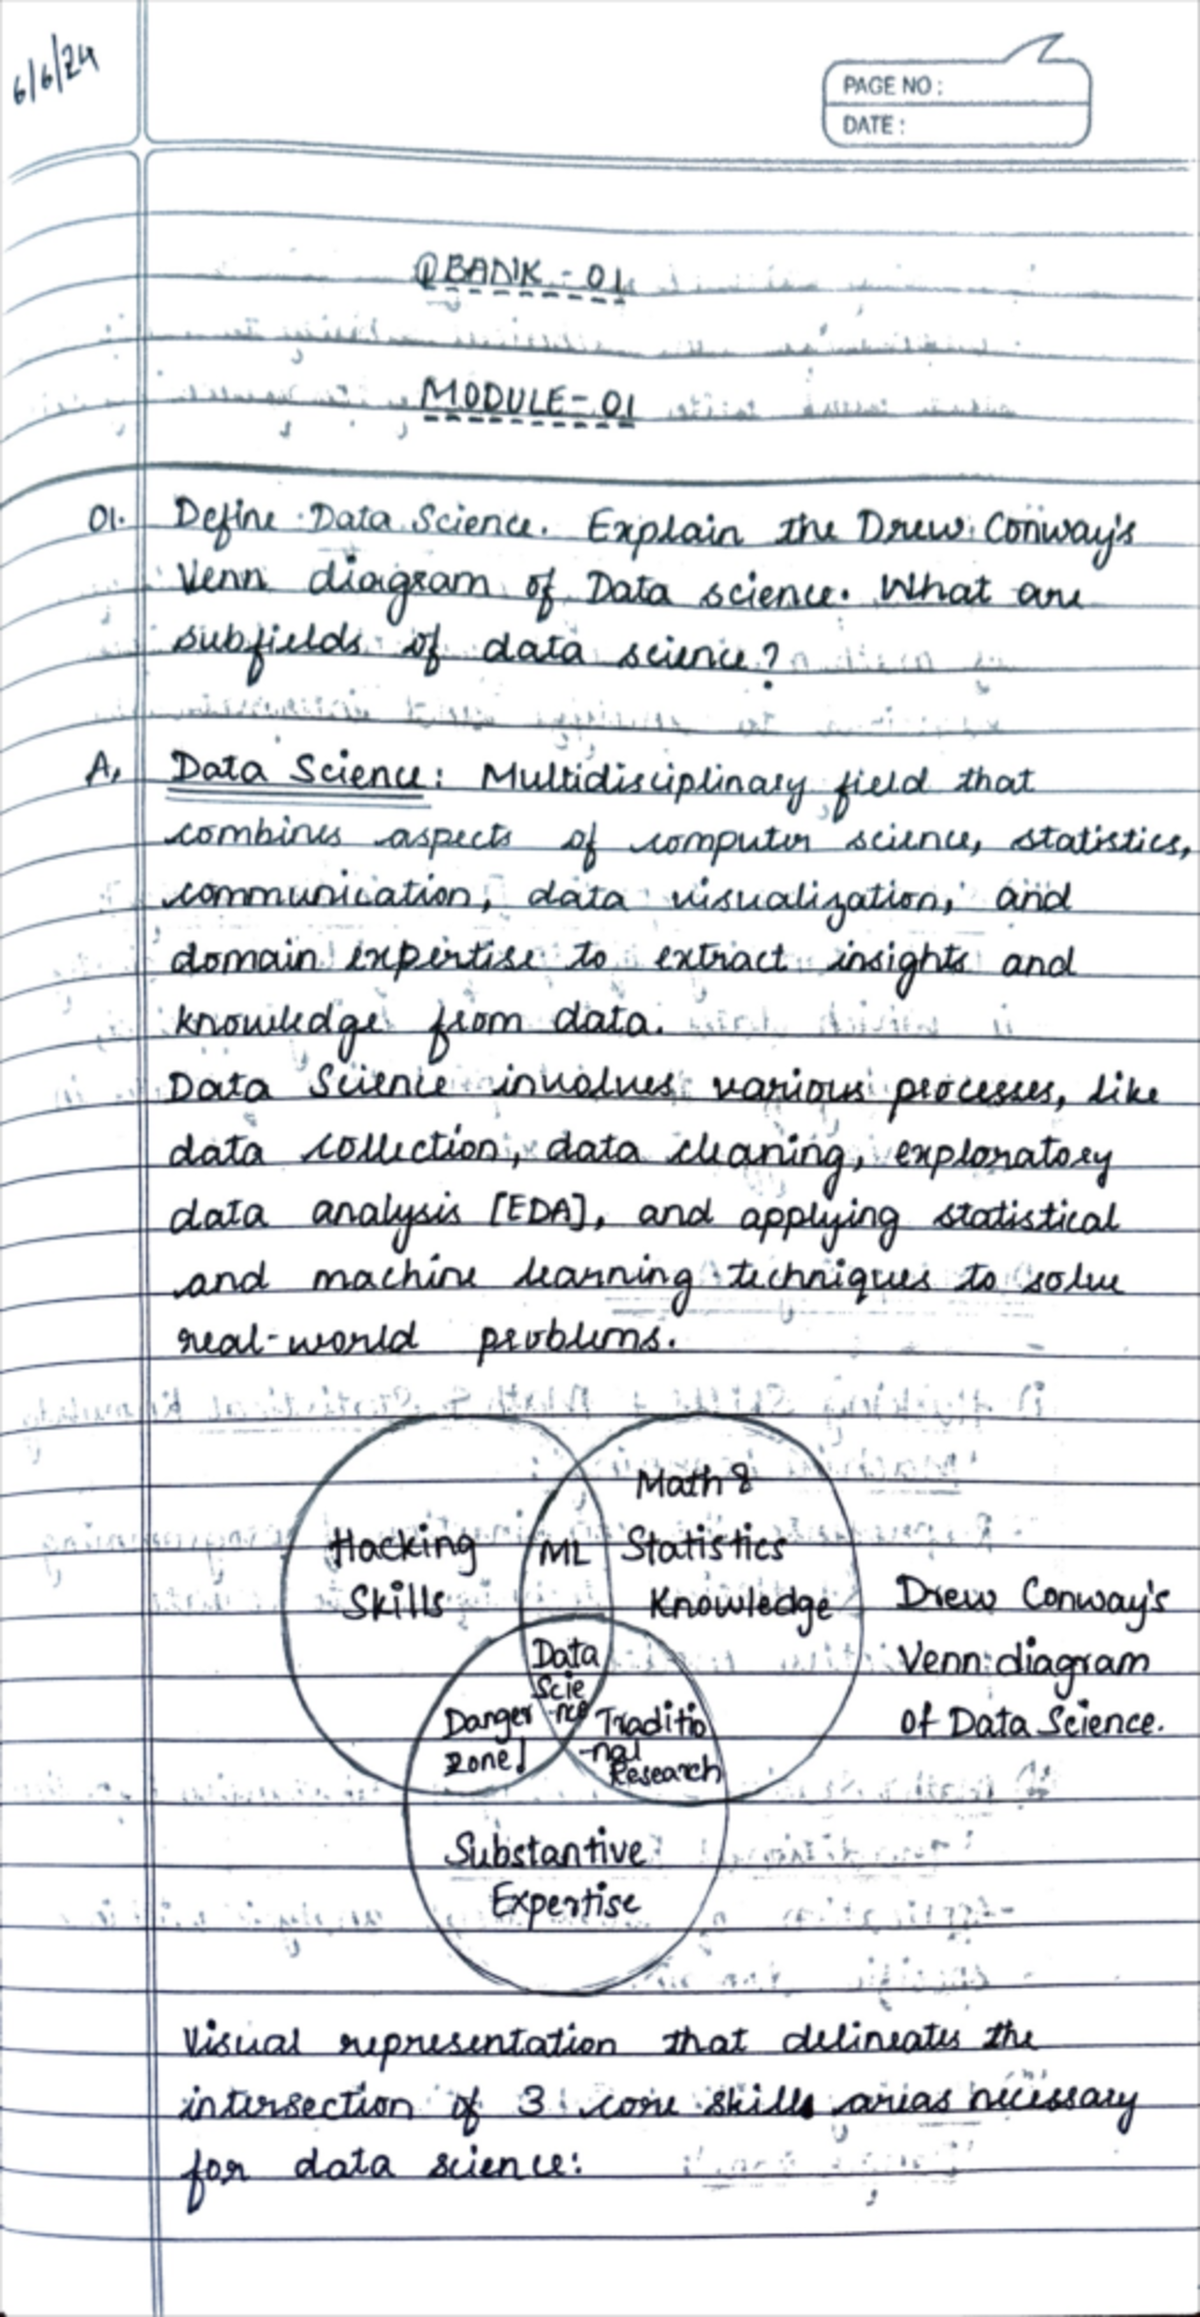 6/6/24
PAGE NO:
DATE:
QBANK - 01
MODULE - 01
01. Define Data Science. Explain the Drew Conway's
Venn diagram of Data science. What are
subfields of data science?
A. Data Science: Multidisciplinary field that
combines aspects of computer science, statistics,
communication, data visualization, and
domain expertise to extract insights and
knowledge from data.
Data Science involves various processes, like
data collection, data cleaning, exploratory
data analysis [EDA], and applying statistical
and machine learning techniques to solve
real-world problems.
Math &
Hacking ML Statistics
Skills Knowledge
Drew Conway's
Venn diagram
of Data Science.
Data
Scie
-nce
Danger
Zone!
Traditio
-nal
Research
Substantive
Expertise
Visual representation that delineates the
intersection of 3 core skills areas necessary
for data science: